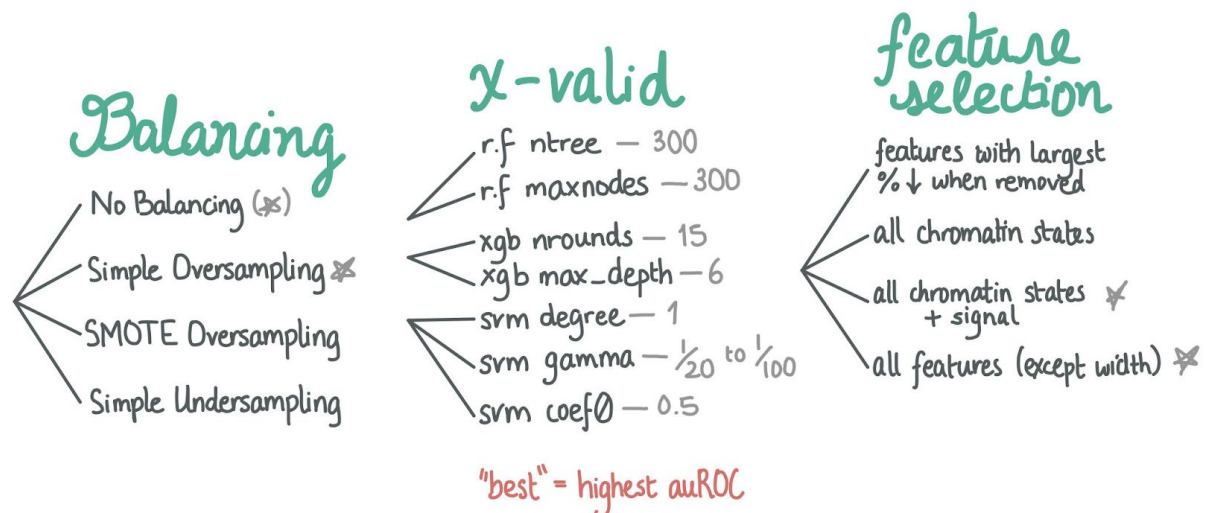 Balancing
No Balancing (☆)
Simple Oversampling ☆
SMOTE Oversampling
Simple Undersampling
x-valid
r.f ntree — 300
r.f maxnodes — 300
xgb nrounds — 15
xgb max_depth — 6
svm degree — 1
svm gamma — 1/20 to 1/100
svm coef0 — 0.5
feature
selection
features with largest
% ↓ when removed
all chromatin states
all chromatin states ☆
+ signal
all features (except width) ☆
"best" = highest auROC